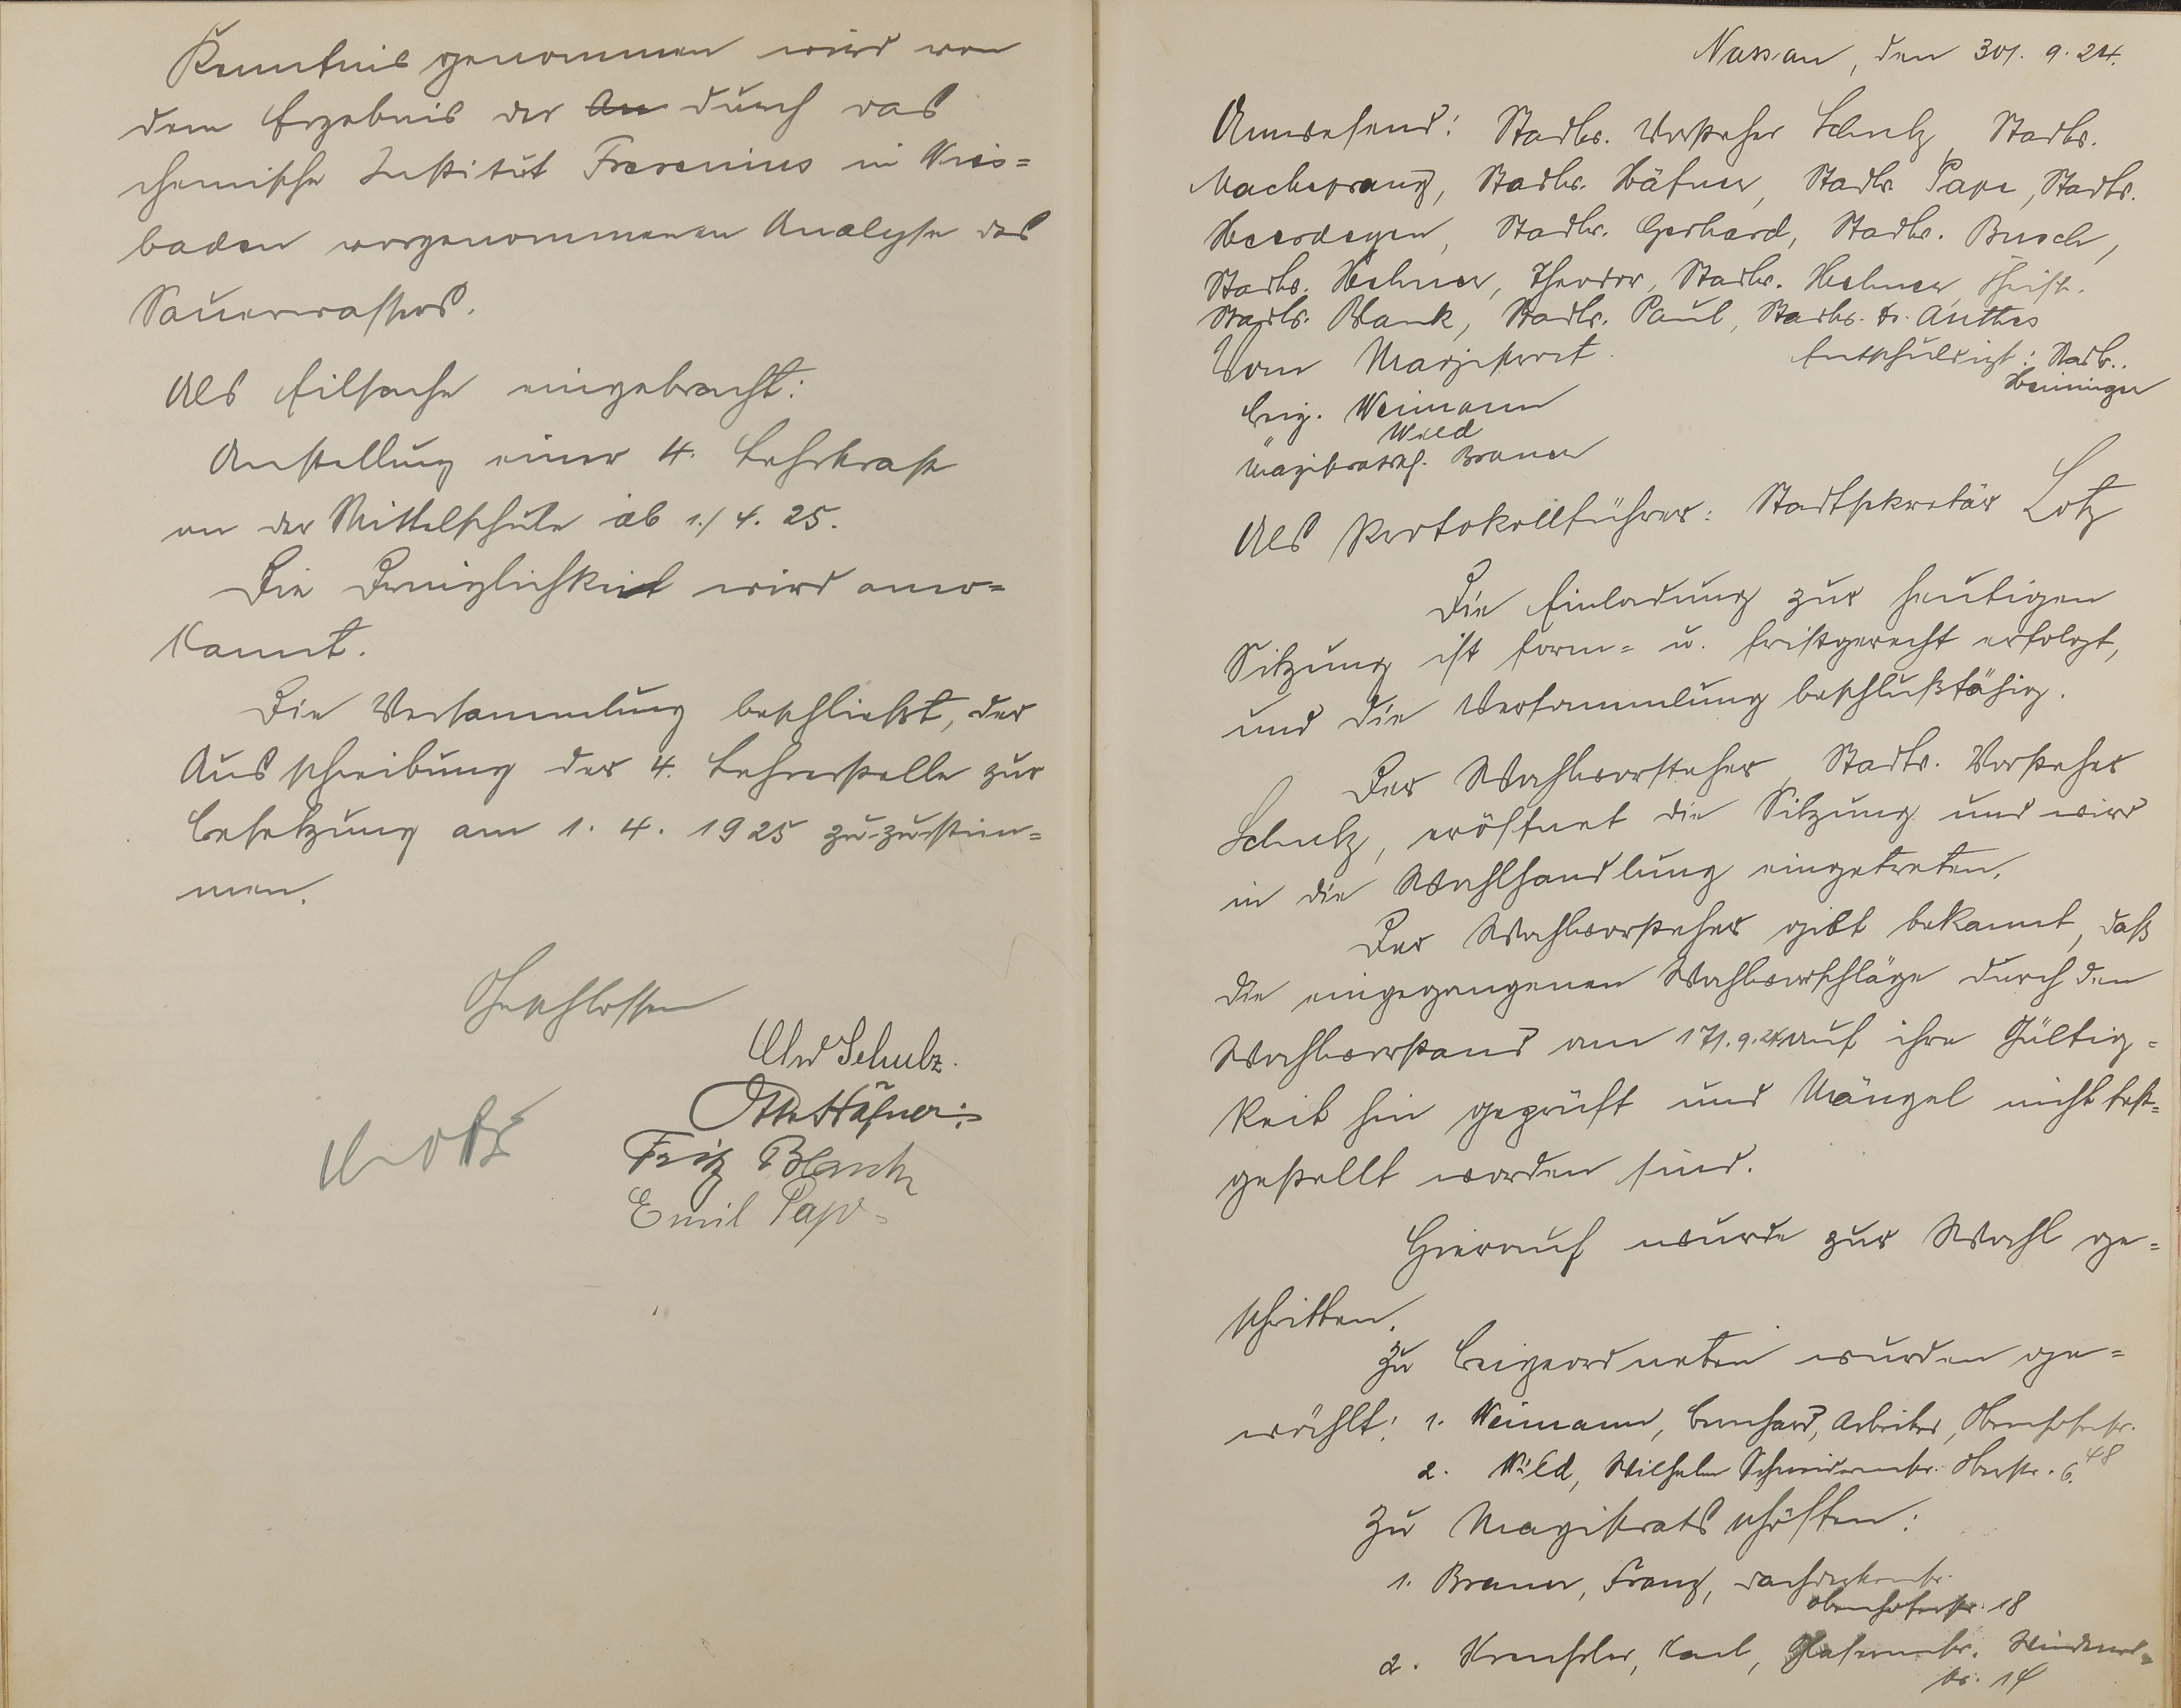 Kenntnis genommen wird von
dem Ergebnis der An durch das
chemische Institut Fresenius in Wies=
baden vorgenommenen Analyse des
Sauerwassers.
Als Eilsache eingebracht:
Anstellung einer 4. Lehrkraft
an der Mittelschule ab 1./4. 25.
Die Dringlichkeit wird aner=
kannt.
Die Versammlung beschließt, der
Ausschreibung der 4. Lehrerstelle zur
Besetzung am 1. 4. 1925 zuzustim=
men.
Geschlossen
Schulz.
Otto Häfner
Fritz Blank
Emil Pape
Nassau, den 30. 9. 24.
Anwesend: Stadtv. Vorsteher Schulz, Stadtv.
Macheprang, Stadtv. Häfner, Stadtv. Pape, Stadtv.
Heerdegen, Stadtv. Gerhard, Stadtv. Busch,
Stadtv. Hehner, Theodor, Stadtv. Hehner, Christ.
Stadtv. Blank, Stadtv. Paul, Stadtv. Dr. Anthes
Vom Magistrat
Entschuldigt: Stadtv.
Henninger
Beig. Weimann
" Wild
Magistratssch. Bramer
Als Protokollführer: Stadtsekretär Lotz
Die Einladung zur heutigen
Sitzung ist form= u. fristgerecht erfolgt,
und die Versammlung beschlußfähig.
Der Wahlvorsteher, Stadtv. Vorsteher
Schulz, eröffnet die Sitzung und wird
in die Wahlhandlung eingetreten.
Der Wahlvorsteher gibt bekannt, daß
die eingegangenen Wahlvorschläge durch den
Wahlvorstand am 17. 9. 24 auf ihre Gültig=
keit hin geprüft und Mängel nicht fest=
gestellt worden sind.
Hierauf wurde zur Wahl ge=
schritten.
Zu Beigeordneten wurden ge=
wählt: 1. Weimann, Bernhard, Arbeiter, Obernhoferstr.
48
2. Wild, Wilhelm Schneidermstr. Oberstr. 6.
Zu Magistratsschöffen:
1. Bramer, Franz, Dachdeckermstr.
Obernhoferstr. 18
2. Karl, Glasermstr.
str. 14